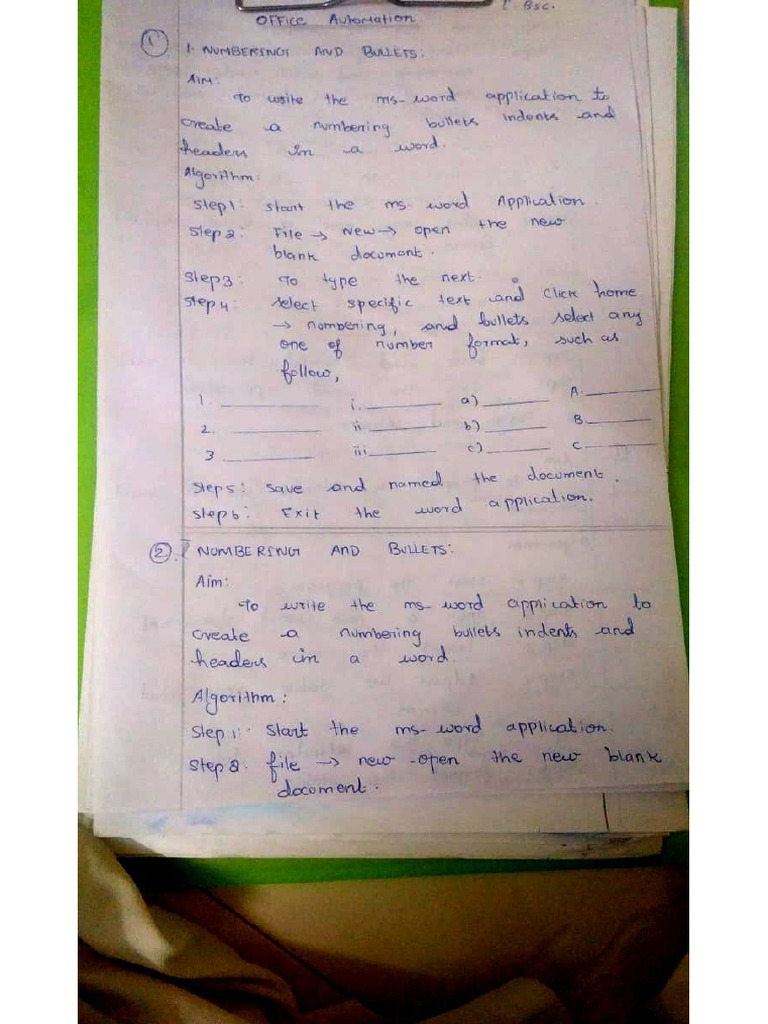 I Bsc.
OFFICE Automation
1 1. NUMBERING AND BULLETS:
Aim:
To write the ms-word application to
create a numbering bullets indents and
headers in a word.
Algorithm:
Step1: Start the ms-word Application.
Step2: File → New → open the new
blank document.
Step3: To type the next.
Step4: Select specific text and click home
→ numbering, and bullets select any
one of number format, such as
follow,
1. i. a) A.
2. ii b) B.
3 iii c) C.
Step5: Save and named the document.
Step6: Exit the word application.
2 NUMBERING AND BULLETS:
Aim:
To write the ms-word application to
create a numbering bullets indents and
headers in a word.
Algorithm:
Step1: Start the ms-word application.
Step2: file → new -open the new blank
document.